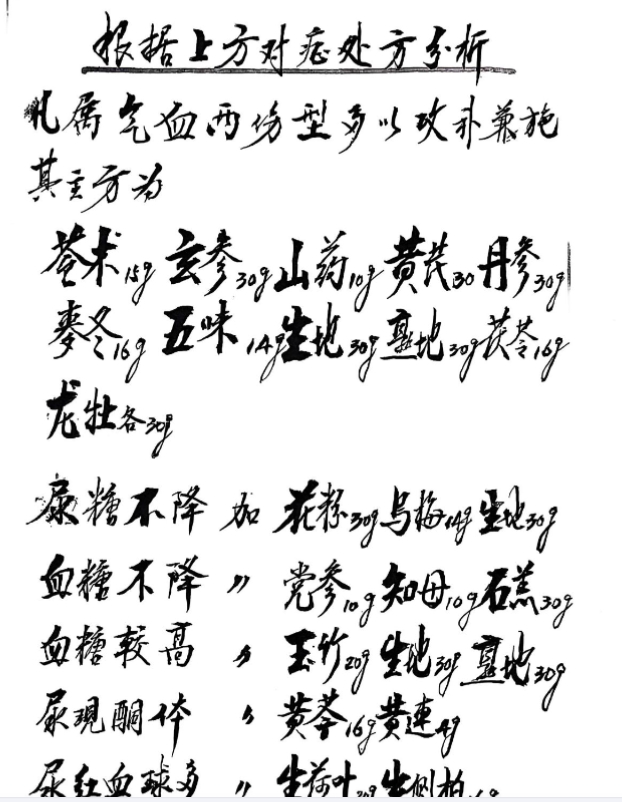 根据上方对症处方分析
凡属气血两伤型多以攻补兼施
其主方为
苍术15g 玄参30g 山药10g 黄芪30 丹参30g
麥冬16g 五味14g 生地30g 熟地30g 茯苓16g
龙牡各30g
尿糖不降 加 花粉30g 乌梅14g 生地30g
血糖不降 〃 党参10g 知母10g 石羔30g
血糖较高 〃 玉竹20g 生地30g 熟地30g
尿现酮体 〃 黄芩16g 黄連4g
尿红血球多 〃 生荷叶 生侧柏